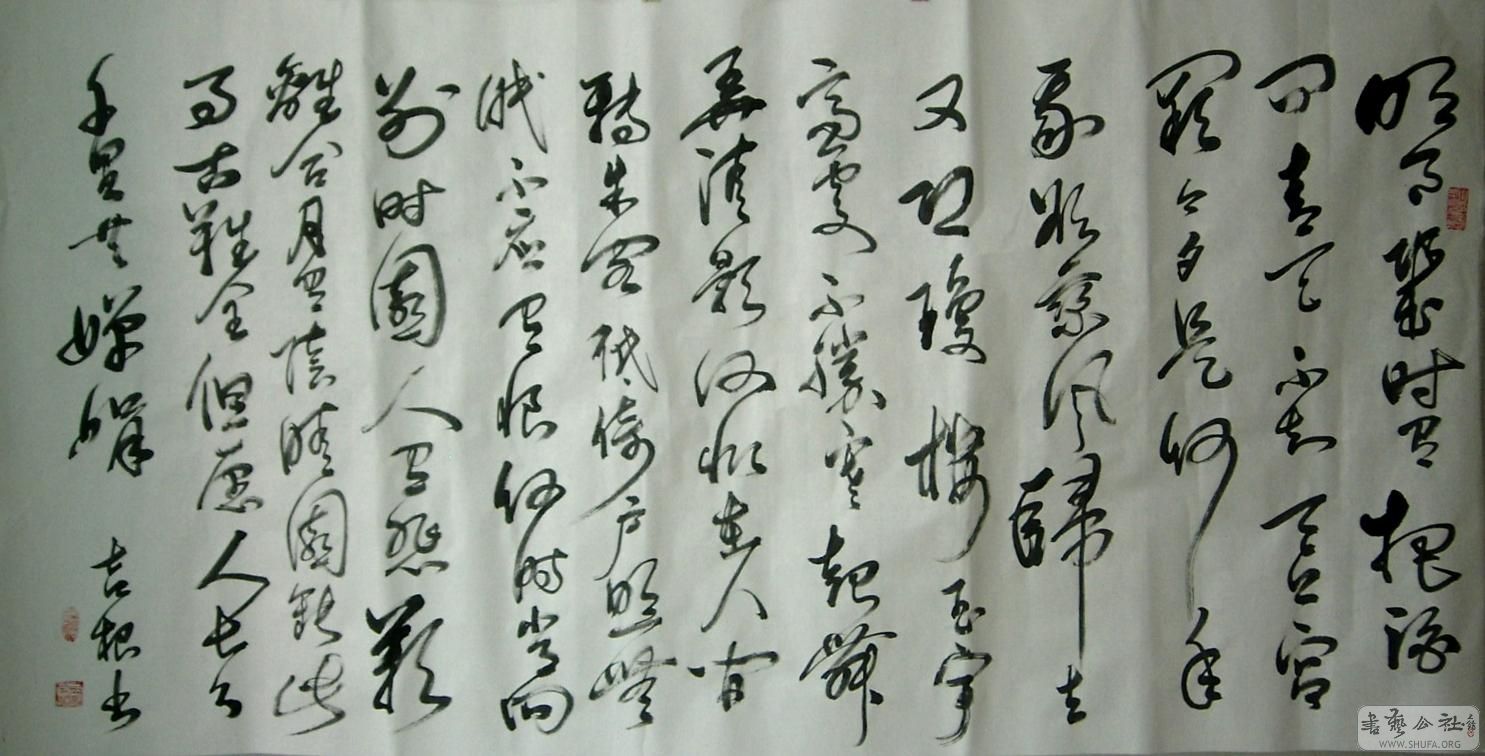 明月幾时有把酒
问青天不知天上宫
阙今夕是何年
我欲乘风歸去
又恐瓊楼玉宇
高處不勝寒起舞
弄清影何似在人间
轉朱阁低绮户照無
眠不应有恨何时常向
别时圆人有悲歡
離合月有陰晴圆缺此
事古難全但愿人长久
千里共嬋娟 吉根书
書藝公社
WWW.SHUFA.ORG